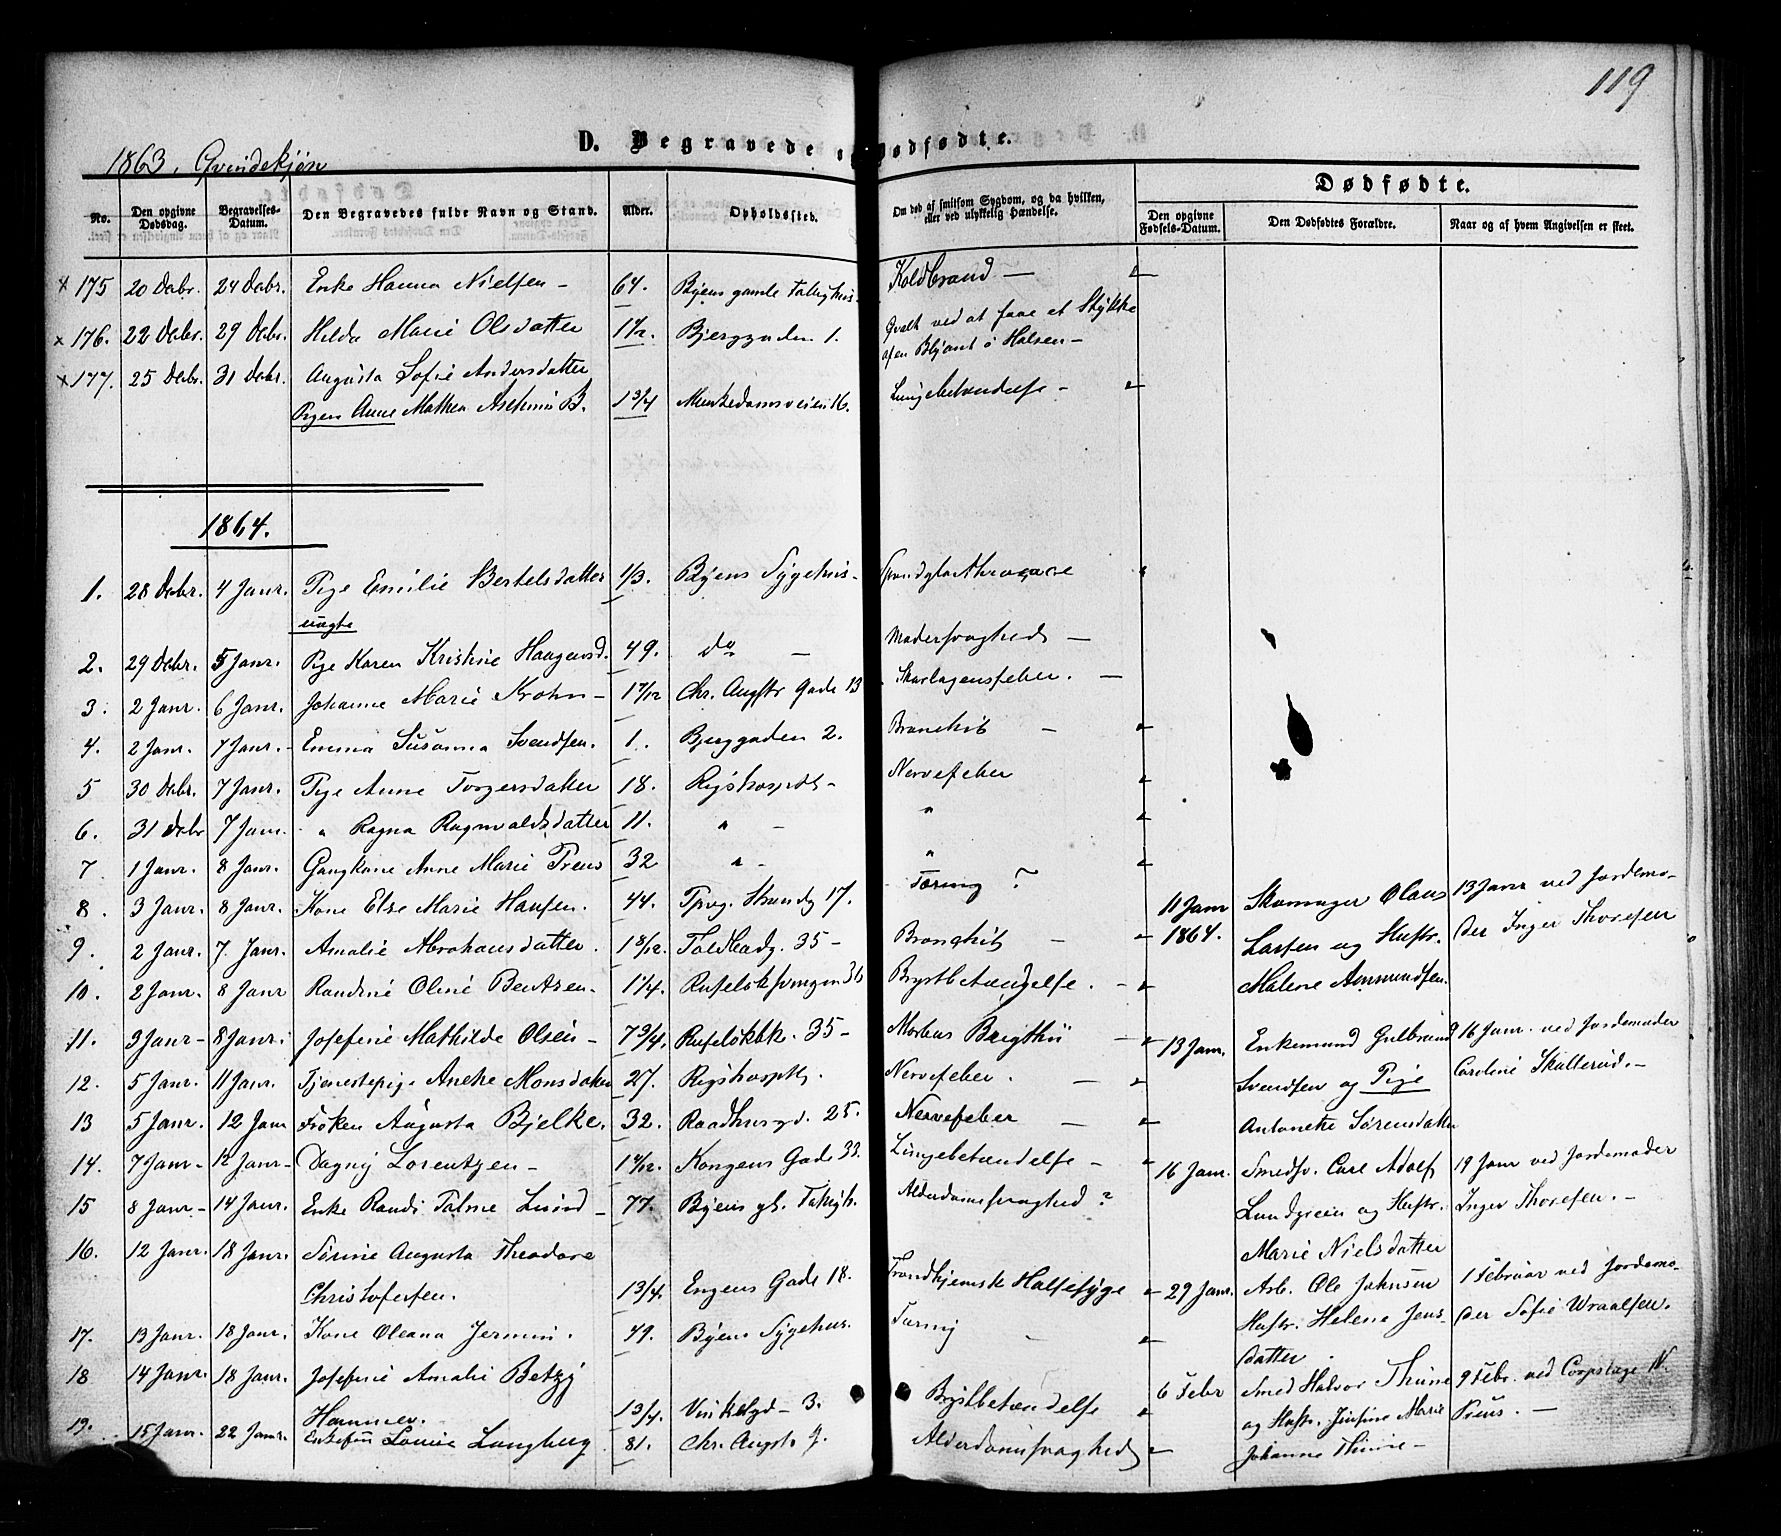 119
D. Begravede o Dødfødte.
1863. Qvindekjøn
No. Den opgivne Dødsdag. Begravelses-Datum. Den Begravedes fulde Navn og Stand. Alder. Opholdssted. Om død af smitsom Sygdom, og da hvilken, eller ved ulykkelig Hændelse. Dødfødte.
Den opgivne Fødsels-Datum. Den Dødfødtes Forældre. Naar og af hvem Angivelsen er skeet.
x 175 20 Debr. 24 Debr. Enke Hanna Nielsen – 64. Byens gamle Koldbrand —
x 176. 22 Debr. 29 Debr. Hilda Marie Olsdatter 1 1/2. Bjerggaden 1. Qvalt ved at faae et Stykke
afen Blyant i Halsen –
x 177. 25 Debr. 31 Debr. Augusta Sofie Andersdatter
Pigen Anne Mathea B. 1 3/4 Munkedamsveien 16. Lungebetændelse –
1864.
1. 28 Debr. 4 Janr. Pige Emilie Bertelsdatter 1/3. Byens Sygehus –
uægte
2. 29 Debr. 5 Janr. Pige Karen Kristine Haagensd. 49. do — Modersvaghed —
3. 2 Janr. 6 Janr. Johanne Marie Krohn – 1 7/12 Chr. Augsts Gade 13 Skarlagensfeber. —
4. 2 Janr. 7 Janr. – Emma Susanna Svendsen. 1. Bjerggaden 2. Bronchit —
5 30 Debr. 7 Janr. Pige Anne Torgersdatter 18. Rigshospit. – Nervefeber
6. 31 Debr 7 Janr. " Ragna Ragnvaldsdatter 11. " – "
7 1 Janr. 8 Janr. Gangkone Anne Marie Preus 32 " – "
8. 3 Janr. 8 Janr. Kone Else Marie Hansen. 44. Tæring ? 11 Janr Olaus 13 Janr ved Jordemo-
9. 2 Janr. 7. Janr. Amalie Abrahamsdatter. 1 8/12. Toldbodg. 35 – Bronchit — 1864. Larsen og Hustr. der Inger Thoresen
10. 2 Janr. 8 Janr Randine Oline Bentzen. 1 1/4. Brystbetændelse. – Malene Aamundsen.
11. 3 Janr – 8 Janr. Josefine Mathilde Olsen – 7 3/4. Ruseløkbk. 35 – Morbus Brigthii 13 Janr. Enkemand Gulbrand 16 Janr. ved Jordemoder
12. 5 Janr. 11 Janr. Tjenestepige Anche Monsdatter 27. Rigshosptl. Nervefeber. — Svendsen og Pige Caroline Skullerud. –
13 5 Janr. 12 Janr Frøken Augusta Bjelke. 32. Raadhusgd. 25. Nervefeber — Antonette Sørensdatter
14. 7 Janr – 12 Janr – Dagny Lorentzen – Kongens Gade 33. Lungebetændelse – 16 Janr. Smedsv. Carl Adolf 19 Janr ved Jordemoder
15 8 Janr – 14 Janr. Enke Randi 77. Byens gl. Alderdomssvaghed ? og Hustr. Inger Thoresen. –
16. 12 Janr. 18 Janr. Sørine Augusta Theodore Marie Nielsdatter
Christofersen. 1 3/4. Engens Gade 18. Trondhjemsk Halsesyge 29 Janr. Arb. Ole Johnsen 1 Februar ved Jordemo-
17. 13 Janr. 18 Janr. Kone Oleana 49. Byens Sygehus. Tæring – Hustr. Helene Jens- der Sofie Wraalsen.
datter.
18 14 Janr. 18 Janr. Josefine Amalie Betzy 6 Febr Smed Halvor Thune 9 Febr. ved Corpslæge N.
Hammer. 1 3/4. Vinkelgd – 3. Brystbetændelse og Hustr. Jensine Marie Preus. —
19. 15 Janr. 22 Janr. Lovise Langberg 81. Chr. Augsts g. Alderdomssvaghed Johanne Thune –